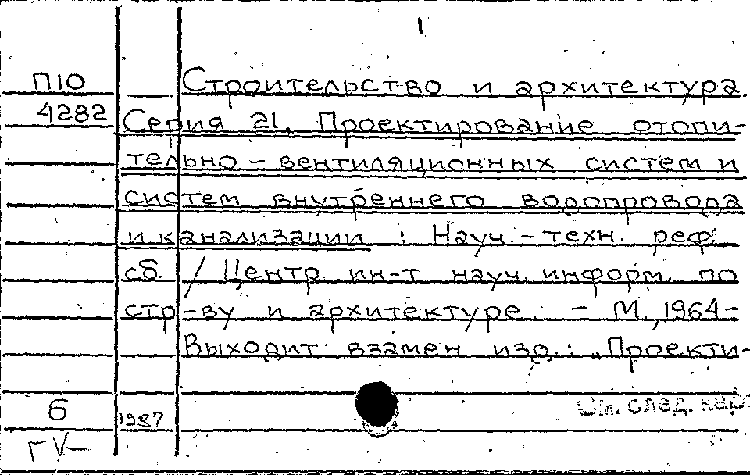 1
П10 Строительство и архитектура.
4282 Серия 21. Проектирование отопи-
тельно-вентиляционных систем и
систем внутреннего водопровода
и канализации : Науч-техн. реф.
сб. / Центр. ин-т науч. информ. по
стр-ву и архитектуре. - М., 1964-
Выходит взамен изд.: „Проекти-
б 1987 См. след. карт
ГV-